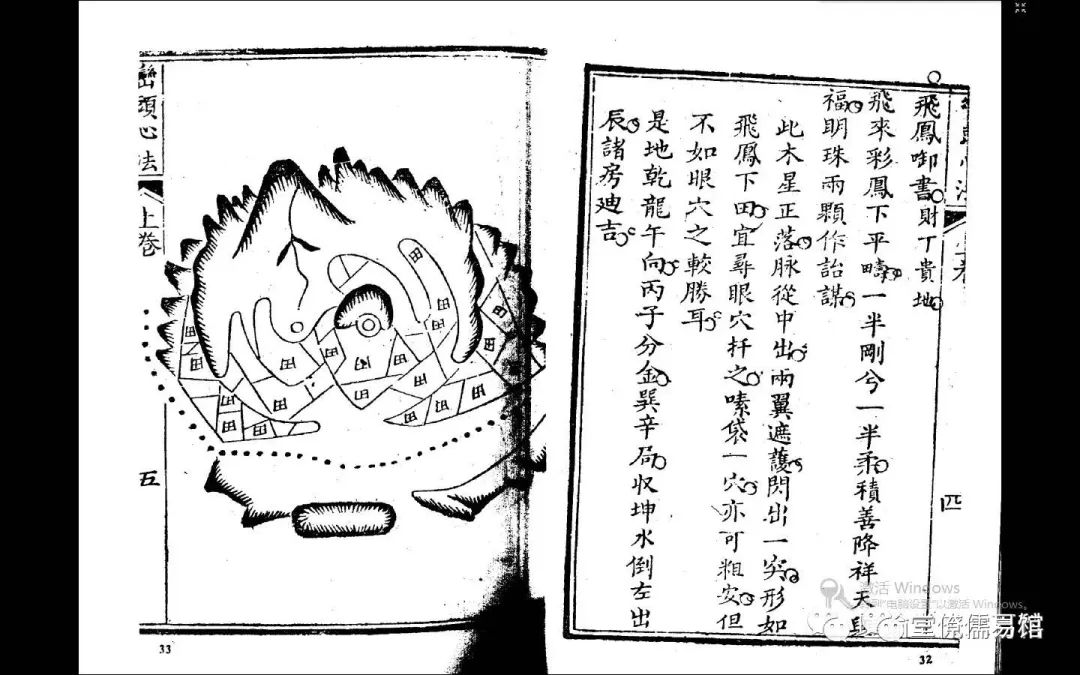 飛鳳啣書財丁貴地
飛來彩鳳下平疇一半剛兮一半柔積善降祥天
福明珠兩顆作詒謀
此木星正落脉從中出兩翼遮護閃出一突形如
飛鳳下田宜尋眼穴扦之嗉袋一穴亦可粗安但
不如眼穴之較勝耳
是地乾龍午向丙子分金巽辛局収坤水倒左出
辰諸房廸吉
四
32
巒頭心法
上卷
五
田
田
田
田
田
田
田
田
田
田
田
田
33
激活 Windows
以激活 Windows。
儒易館